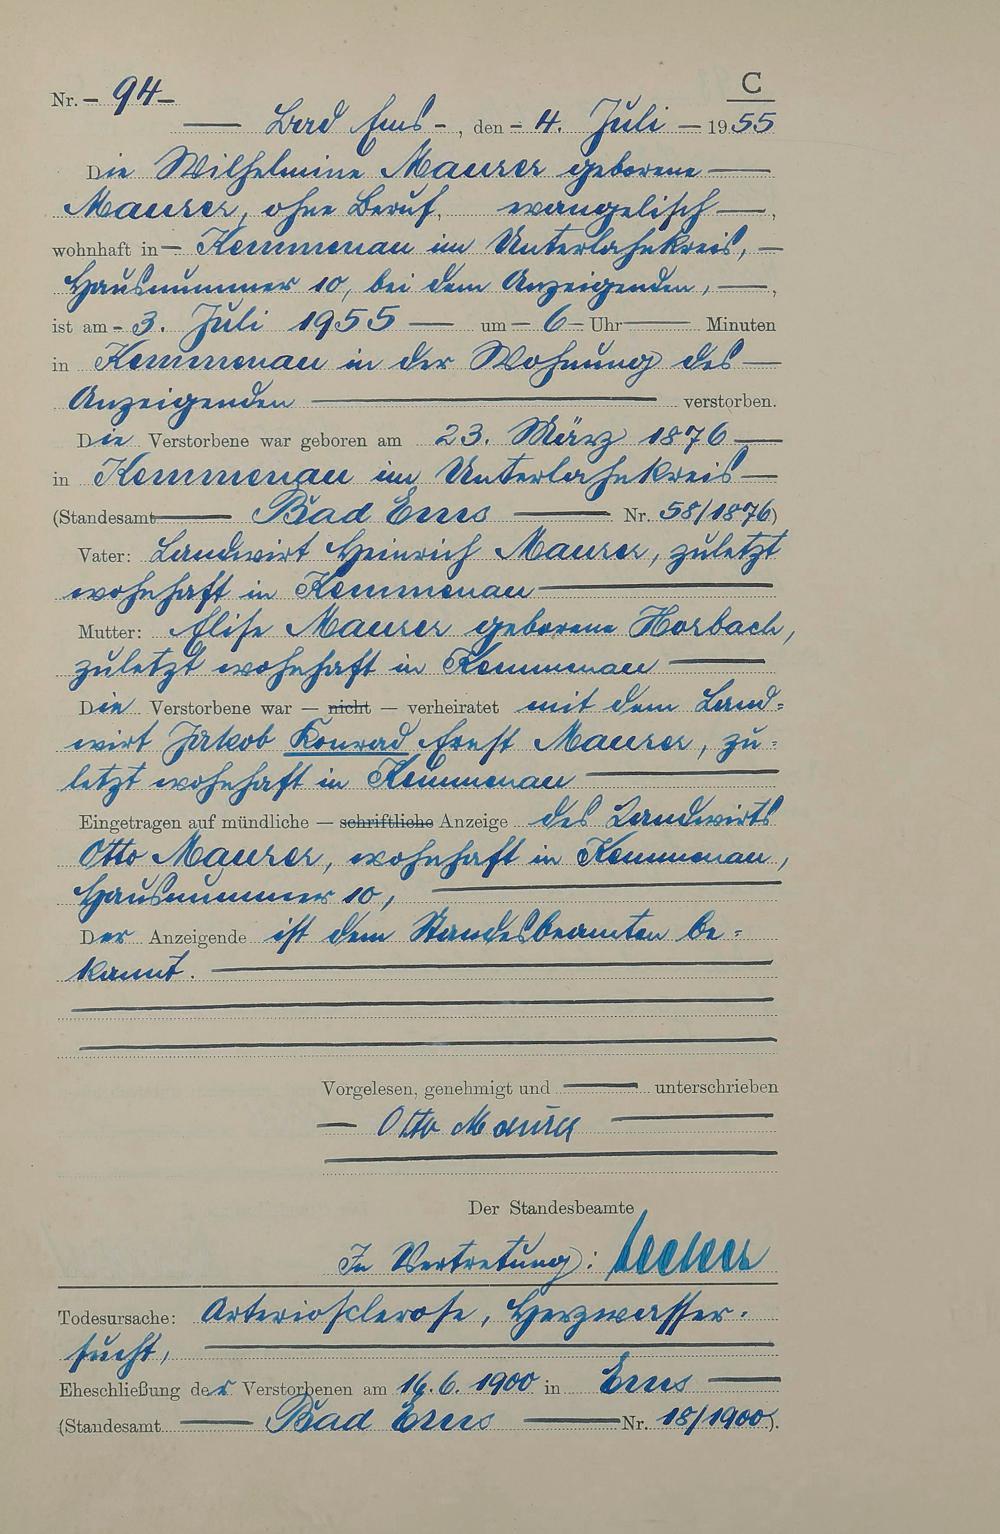 C
Nr. - 94 -
— Bad Ems -, den - 4. Juli — 1955
Die Wilhelmine Maurer geborene —
Maurer, ohne Beruf, evangelisch —,
wohnhaft in — Kemmenau im Unterlahnkreis, —
Hausnummer 10, bei dem Anzeigenden, —,
ist am - 3. Juli 1955 — um — 6 — Uhr — Minuten
in Kemmenau in der Wohnung des —
Anzeigenden — verstorben.
Die Verstorbene war geboren am 23. März 1876 —
in Kemmenau im Unterlahnkreis —
(Standesamt — Bad Ems — Nr. 58/1876)
Vater: Landwirt Heinrich Maurer, zuletzt
wohnhaft in Kemmenau —
Mutter: Elise Maurer geborene Horbach,
zuletzt wohnhaft in Kemmenau —
Die Verstorbene war — nicht — verheiratet mit dem Land-
wirt Jakob Konrad Ernst Maurer, zu-
letzt wohnhaft in Kemmenau —
Eingetragen auf mündliche — schriftliche Anzeige des Landwirts
Otto Maurer, wohnhaft in Kemmenau,
Hausnummer 10, —
Der Anzeigende ist dem Standesbeamten be-
kannt. —
Vorgelesen, genehmigt und — unterschrieben
— Otto Maurer —
Der Standesbeamte
In Vertretung:
Todesursache: Arteriosclerose, Herzwasser-
sucht, —
Eheschließung der Verstorbenen am 16.6.1900 in Ems —
(Standesamt — Bad Ems — Nr. 18/1900).